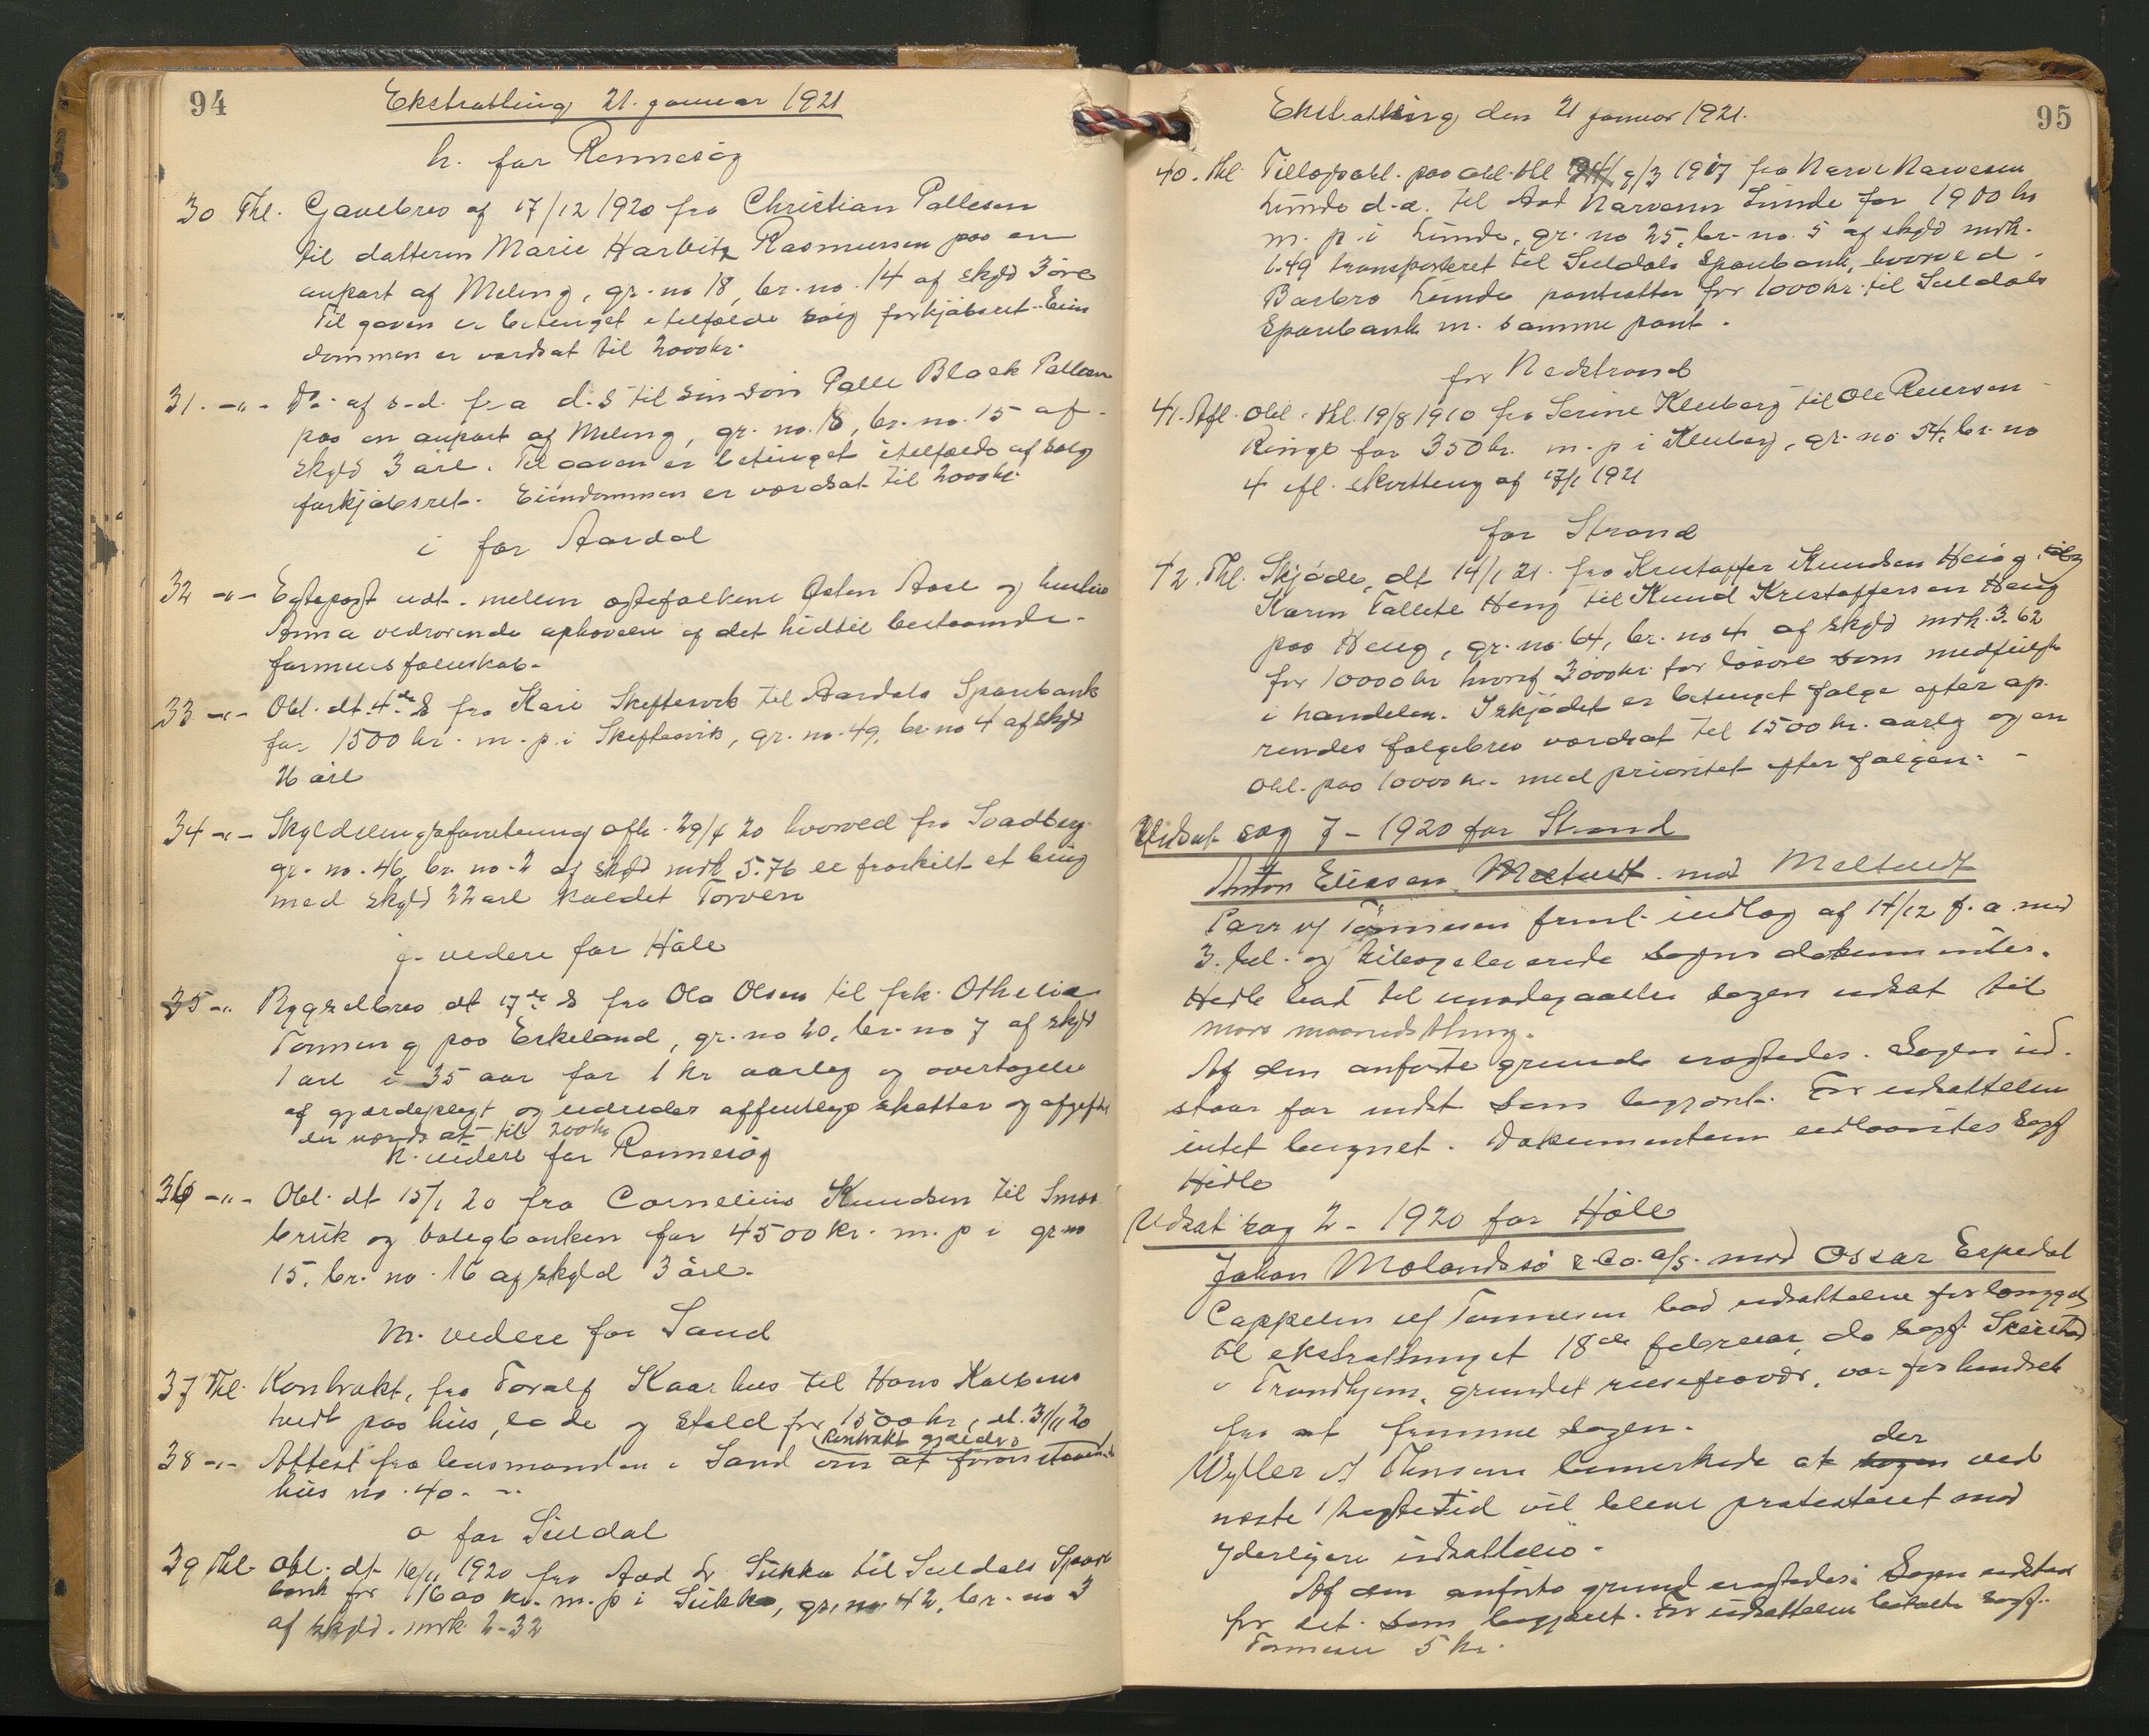 94
Ekstratting 21. januar 1921
h. for Rennesøy
30 Thl. Gavebrev af 17/12 1920 fra Christian Pallesen
til datteren Marie Harbitz Rasmussen paa en
anpart af Meling, gr. no 18, br. no. 14 af skyld 3 øre
Til gaven er betinget i tilfælde salg forkjøbsret. Eien
dommen er værdsat til 2000 kr.
31. -"- Do. af s.d. fra d.s til sin søn Palle Black Pallesen
paa en anpart af Meling, gr. no. 18, br. no. 15 af
skyld 3 øre. Til gaven er betinget i tilfælde af salg
forkjøbsret. Eiendommen er værdsat til 2000 kr.
i for Aardal
32 -"- Egtepagt udt. mellem egtefolkene Østen Aase og hustru
Anna vedrørende ophævelse af det hidtil bestaaende
formuesfælleskab.
33 -"- Obl. dt. 4de ds fra Kari Skeftesvik til Aardals Sparebank
for 1500 kr. m. p. i Skeftesvik, gr. no. 49, br. no 4 af skyld
26 øre
34 -"- Skylddelingsforretning afh. 29/4 20 hvorved fra Svadberg
gr. no. 46, br. no. 2 af skyld mrk 5.76 er fraskilt et brug
med skyld 22 øre kaldet Torven
j. videre for Høle
35 -"- Bygselbrev dt 17de ds fra Ola Olsen til frk. Othelia
Tønning paa Eikeland, gr. no 20, br. no 7 af skyld
1 øre i 35 aar for 1 kr aarlig og overtagelse
af gjærdepligt og udreder offentlige skatter og afgifter
er værdsat til 200 kr
k. videre for Rennesøy
36 -"- Obl. dt 15/1 20 fra Cornelius Knudsen til Smaa
bruk og boligbanken for 4500 kr. m. p i gr no
15, br. no. 16 af skyld 3 øre.
m. videre for Sand
37 Thl. Kontrakt, fra Toralf Kaarhus til Hans
tvedt paa hus, lade og stald for 1500 kr, dt. 31/11 20
38 -"- Attest fra lensmanden i Sand om at foranstaaende
Kontrakt gjælder
hus no. 40. -"-
o for Suldal
39 Thl. Obl. dt 16/11 1920 fra Aad Sukka til Suldals Spare
bank for 1600 kr. m. p i Sukka, gr. no 42, br. no 3
af skyld. mrk 2-32
95
Ekstratting den 21 januar 1921.
40. thl. Tillægsobl. paa obl. thl 9/3 1917 fra Narve Narvesen
Lunde d.æ. til Aad Narvesen Lunde for 1900 kr
m. p. i Lunde, gr. no 25, br. no. 5 af skyld mrk.
1.49 transporteret til Suldals Sparebank, hvorved
Barbro Lunde pantsætter for 1000 kr. til Suldals
Sparebank m. samme pant.
for Nedstrand
41. Afl. Obl. thl. 19/8 1910 fra Serine Kleiberg til Ole Reiersen
Ringe for 350 kr. m. p i Kleiberg, gr. no 54, br. no
4 ifl. kvittering af 17/1 1921
for Strand
42. Thl. Skjøde, dt 14/1 21. fra Kristoffer Knudsen Heng og
Karen Tallete Heng til Knud Kristoffersen Heng
paa Heng, gr. no. 64, br. no 4 af skyld mrk. 3.62
for 10000 kr hvoraf 3000 kr. for løsøre som medfulgte
i handelen. I skjødet er betinget følge efter op
rendes følgebrev værdsat til 1500 kr. aarlig og en
obl. paa 10000 kr. med prioritet efter følgen.
Udsat sag 7 - 1920 for Strand
Anton Eliasen mod Meltvedt
Parr v/ Tønnesen freml. indlæg af 14/12 f. a. med
3. bil. og tilbageleverede sagens dokumenter.
Hidle bad til imødegaaelse sagen udsat til
mars maanedsthing.
Af den anførte grund eragtedes. Sagen ud.
staar for indst som begjært. For udsættelsen
intet beregnet. Dokumenterne udlaantes Sagf
Hidle
Udsat sag 2 - 1920 for Høle
Johan Molandsø & Co. a/s. mod Oscar Espedal
Cappelen v/ Tønnesen bad udsættelsen forlænget
til ekstrathinget 18de februar, da sagf.
i Trondhjem, grundet reisefravær, var forhindret
fra at fremme sagen.
Wyller v/ Thuesen bemerkede at der ved
næste tægtetid vil blive protesteret mod
yderligere udsættelse.
Af den anførte grund eragtedes: Sagen udstaar
for det. som begjæret. For udsættelsen betalte sagf.
Tønnesen 5 kr.